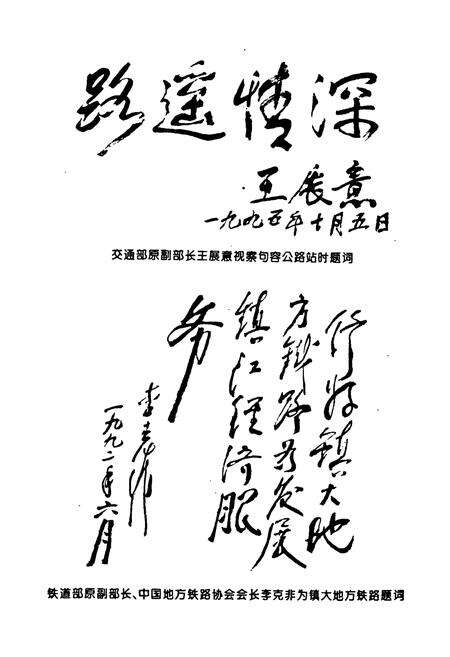 路遥情深
王展意
一九九五年七月五日
交通部原副部长王展意视察句容公路站时题词
修好镇大地
方铁路为发展
镇江经济服
务
李克非
一九九二年六月
铁道部原副部长、中国地方铁路协会会长李克非为镇大地方铁路题词